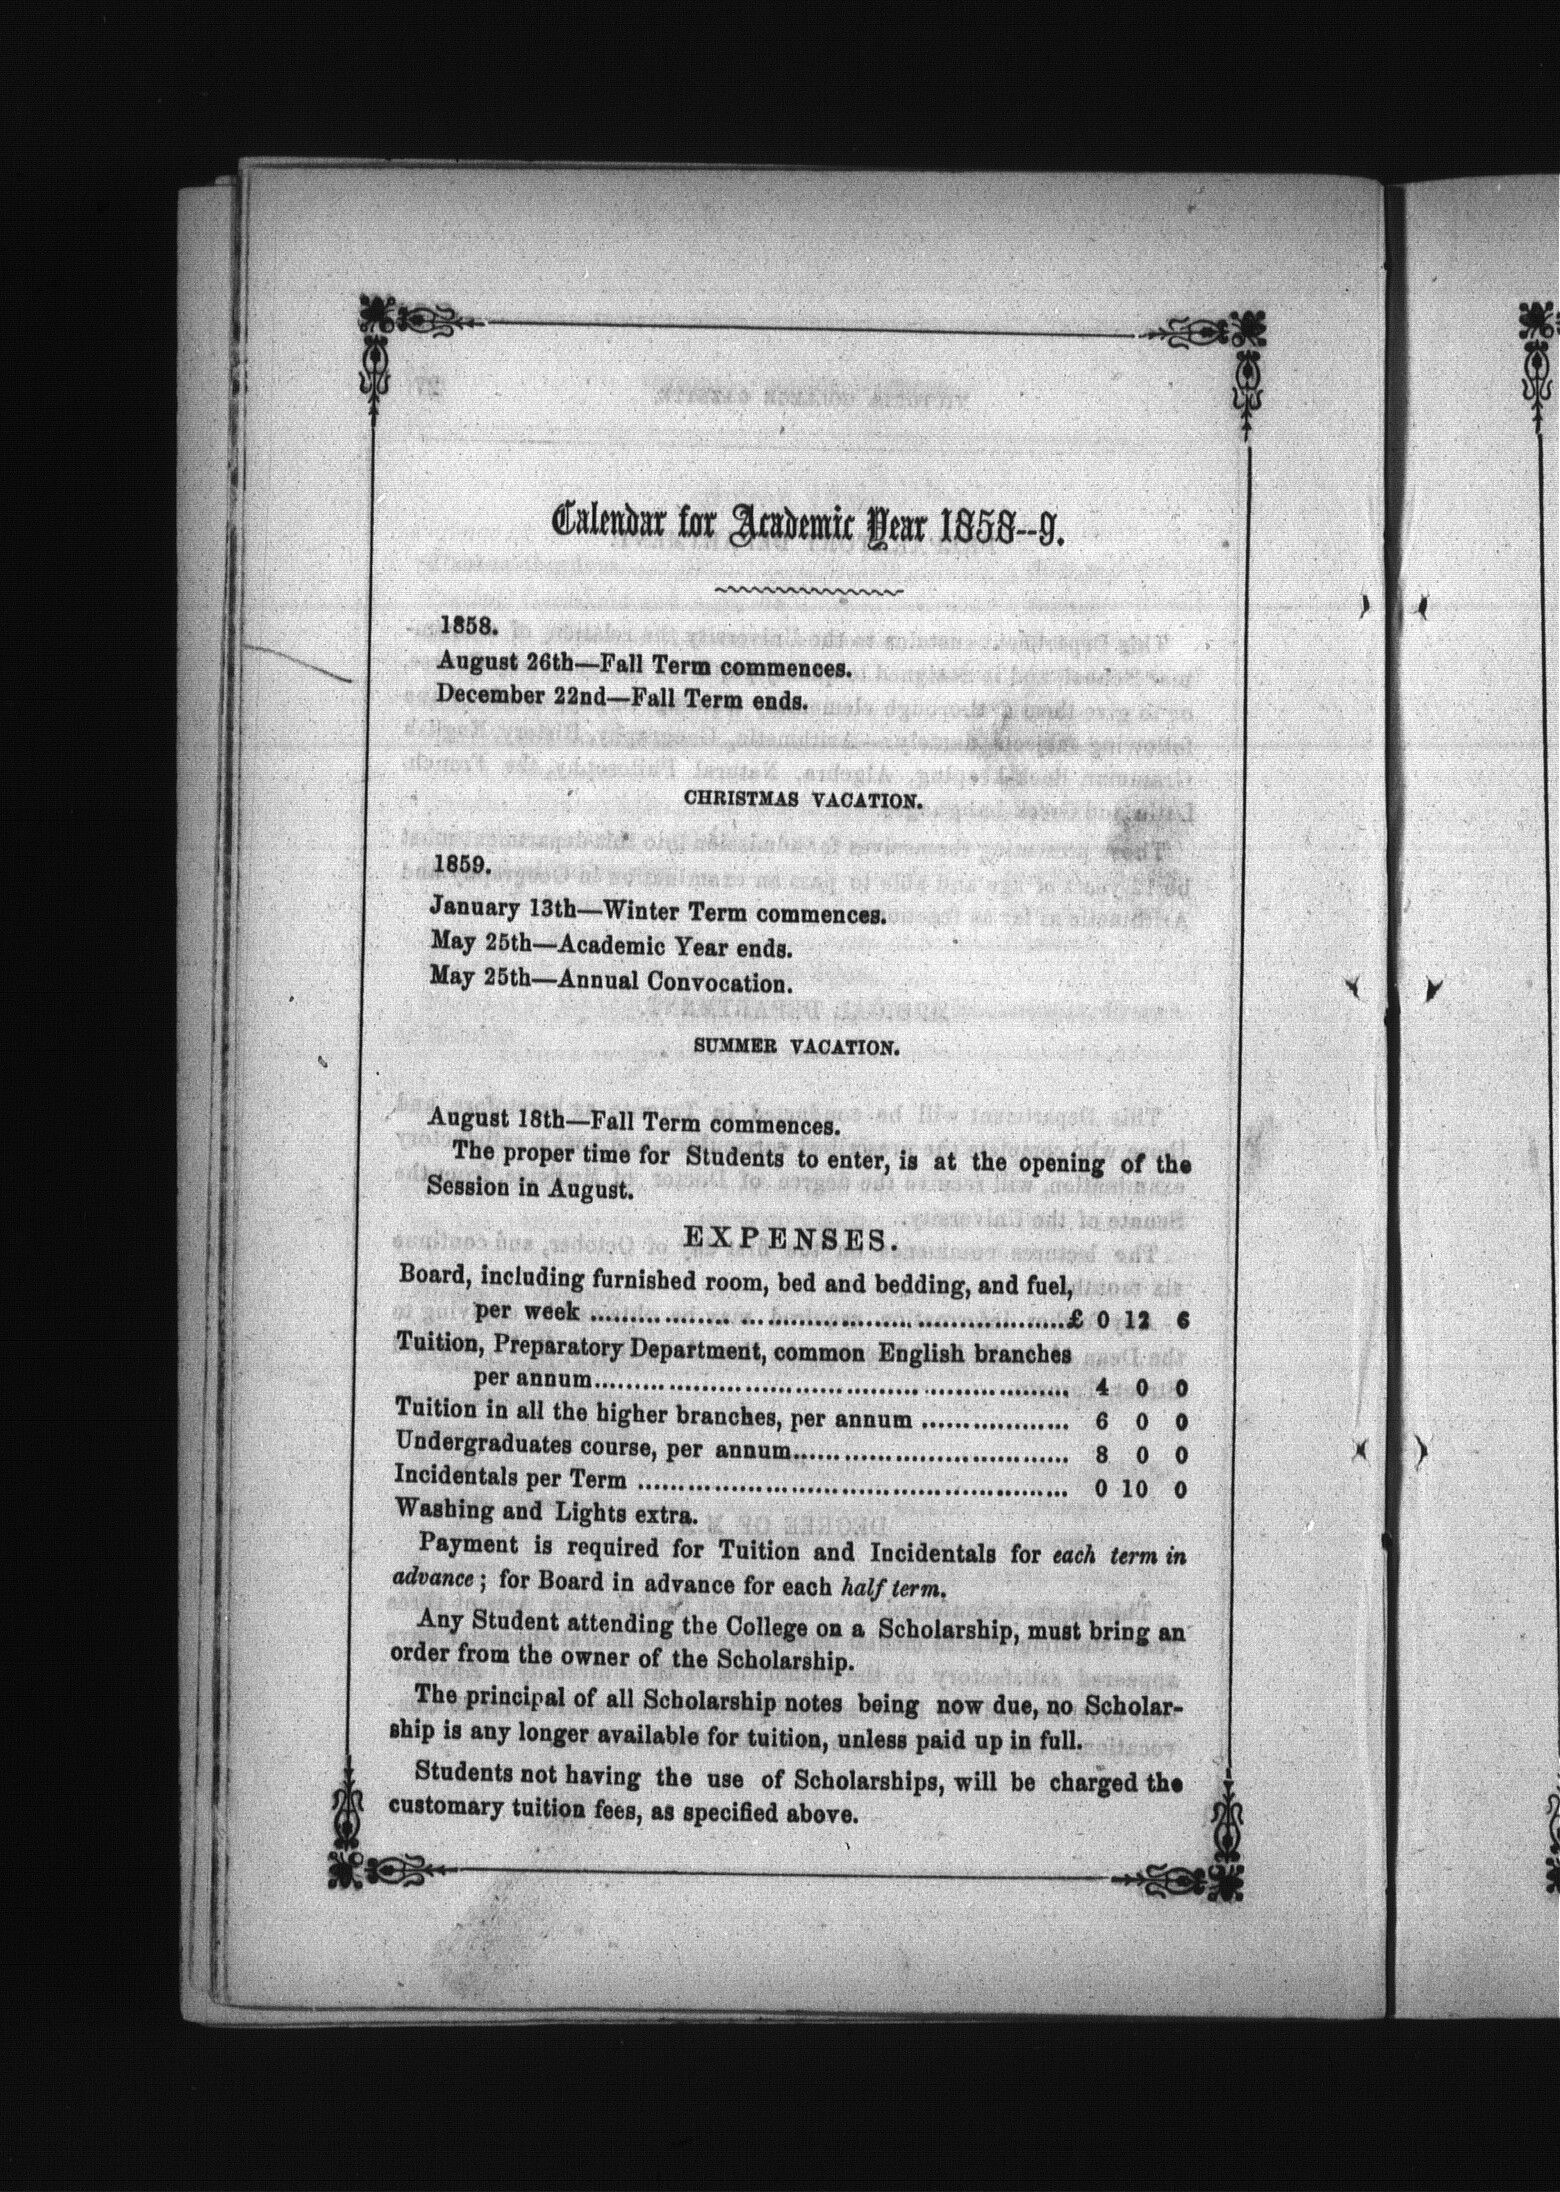 Calendar for Academic Year 1858--9.
1858.
August 26th—Fall Term commences.
December 22nd—Fall Term ends.
CHRISTMAS VACATION.
1859.
January 13th—Winter Term commences.
May 25th—Academic Year ends.
May 25th—Annual Convocation.
SUMMER VACATION.
August 18th—Fall Term commences.
The proper time for Students to enter, is at the opening of the
Session in August.
EXPENSES.
Board, including furnished room, bed and bedding, and fuel,
per week ........................................................£ 0 12 6
Tuition, Preparatory Department, common English branches
per annum........................................................ 4 0 0
Tuition in all the higher branches, per annum .................. 6 0 0
Undergraduates course, per annum................................. 8 0 0
Incidentals per Term .................................................... 0 10 0
Washing and Lights extra.
Payment is required for Tuition and Incidentals for each term in
advance; for Board in advance for each half term.
Any Student attending the College on a Scholarship, must bring an
order from the owner of the Scholarship.
The principal of all Scholarship notes being now due, no Scholar-
ship is any longer available for tuition, unless paid up in full.
Students not having the use of Scholarships, will be charged the
customary tuition fees, as specified above.